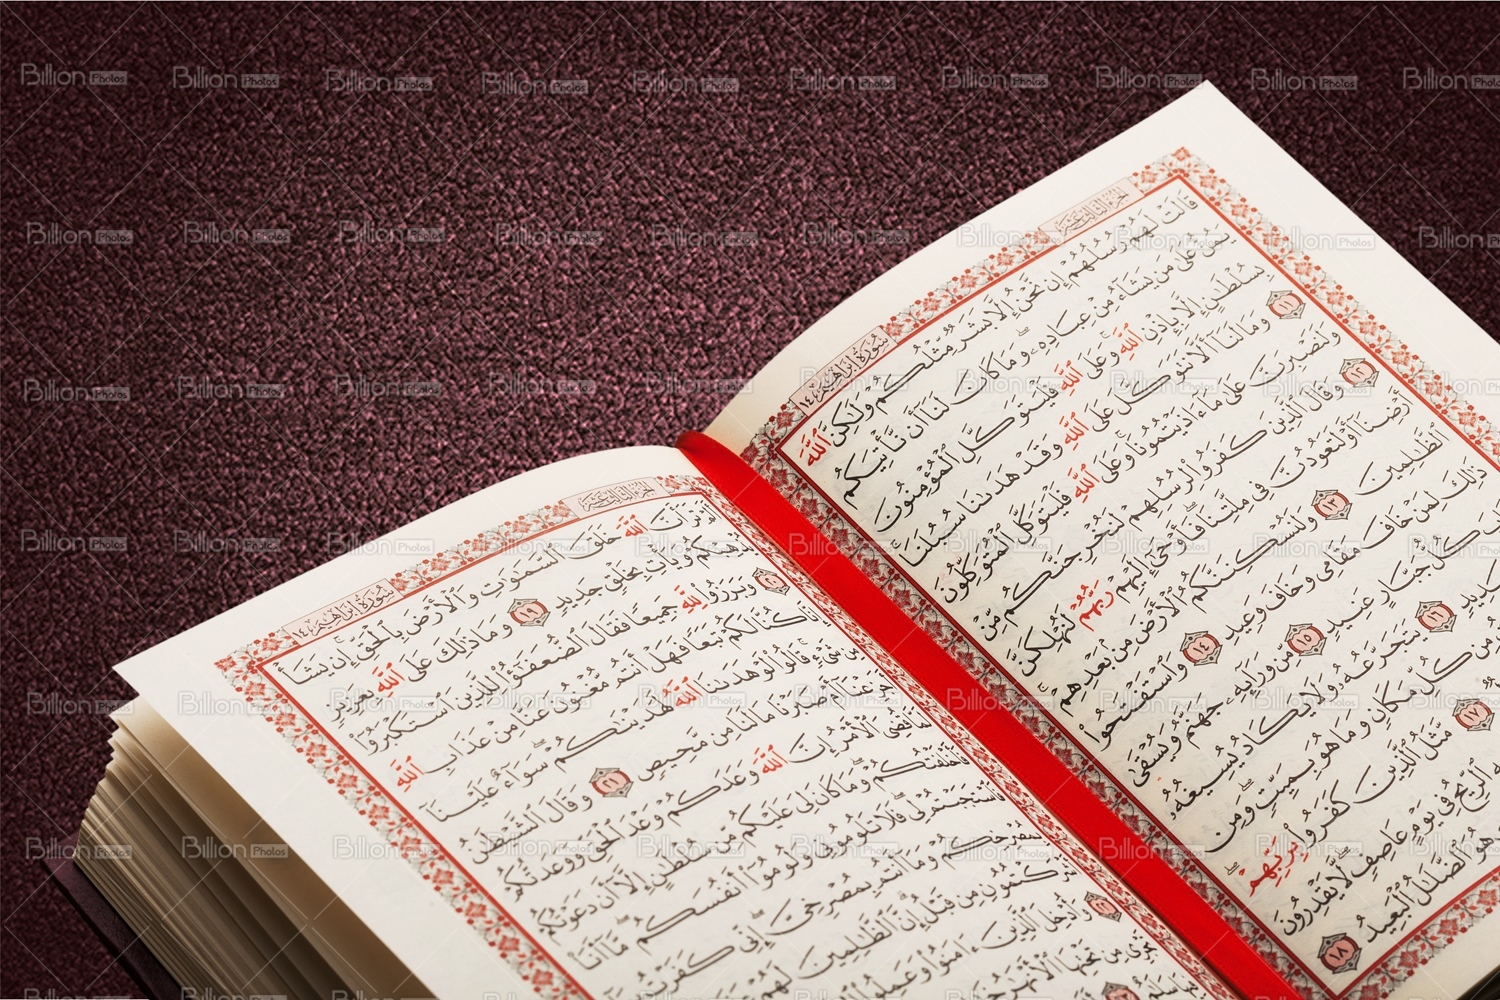 الجزء الثالث عشر
سورة إبراهيم ١٤
قَالَتْ لَهُمْ رُسُلُهُمْ إِن نَّحْنُ إِلَّا بَشَرٌ مِّثْلُكُمْ وَلَٰكِنَّ ٱللَّهَ
يَمُنُّ عَلَىٰ مَن يَشَآءُ مِنْ عِبَادِهِۦ وَمَا كَانَ لَنَآ أَن نَّأْتِيَكُم
بِسُلْطَٰنٍ إِلَّا بِإِذْنِ ٱللَّهِ وَعَلَى ٱللَّهِ فَلْيَتَوَكَّلِ ٱلْمُؤْمِنُونَ
١١ وَمَا لَنَآ أَلَّا نَتَوَكَّلَ عَلَى ٱللَّهِ وَقَدْ هَدَىٰنَا سُبُلَنَا
وَلَنَصْبِرَنَّ عَلَىٰ مَآ ءَاذَيْتُمُونَا وَعَلَى ٱللَّهِ فَلْيَتَوَكَّلِ ٱلْمُتَوَكِّلُونَ
١٢ وَقَالَ ٱلَّذِينَ كَفَرُوا۟ لِرُسُلِهِمْ لَنُخْرِجَنَّكُم مِّنْ
أَرْضِنَآ أَوْ لَتَعُودُنَّ فِى مِلَّتِنَا فَأَوْحَىٰٓ إِلَيْهِمْ رَبُّهُمْ لَنُهْلِكَنَّ
ٱلظَّٰلِمِينَ ١٣ وَلَنُسْكِنَنَّكُمُ ٱلْأَرْضَ مِنۢ بَعْدِهِمْ
ذَٰلِكَ لِمَنْ خَافَ مَقَامِى وَخَافَ وَعِيدِ ١٤ وَٱسْتَفْتَحُوا۟
كُلُّ جَبَّارٍ عَنِيدٍ ١٥ مِّن وَرَآئِهِۦ جَهَنَّمُ وَيُسْقَىٰ
صَدِيدٍ ١٦ يَتَجَرَّعُهُۥ وَلَا يَكَادُ يُسِيغُهُۥ
مِن كُلِّ مَكَانٍ وَمَا هُوَ بِمَيِّتٍ وَمِن
١٧ مَّثَلُ ٱلَّذِينَ كَفَرُوا۟ بِرَبِّهِمْ
ٱلرِّيحُ فِى يَوْمٍ عَاصِفٍ لَّا يَقْدِرُونَ
هُوَ ٱلضَّلَٰلُ ٱلْبَعِيدُ ١٨
الجزء الثالث عشر
سورة إبراهيم ١٤
تَرَ أَنَّ ٱللَّهَ خَلَقَ ٱلسَّمَٰوَٰتِ وَٱلْأَرْضَ بِٱلْحَقِّ إِن يَشَأْ
يُذْهِبْكُمْ وَيَأْتِ بِخَلْقٍ جَدِيدٍ ١٩ وَمَا ذَٰلِكَ عَلَى ٱللَّهِ بِعَزِيزٍ
٢٠ وَبَرَزُوا۟ لِلَّهِ جَمِيعًا فَقَالَ ٱلضُّعَفَٰٓؤُا۟ لِلَّذِينَ ٱسْتَكْبَرُوٓا۟
إِنَّا كُنَّا لَكُمْ تَبَعًا فَهَلْ أَنتُم مُّغْنُونَ عَنَّا مِنْ عَذَابِ ٱللَّهِ
مِن شَىْءٍ قَالُوا۟ لَوْ هَدَىٰنَا ٱللَّهُ لَهَدَيْنَٰكُمْ سَوَآءٌ عَلَيْنَآ
أَجَزِعْنَآ أَمْ صَبَرْنَا مَا لَنَا مِن مَّحِيصٍ ٢١ وَقَالَ ٱلشَّيْطَٰنُ
لَمَّا قُضِىَ ٱلْأَمْرُ إِنَّ ٱللَّهَ وَعَدَكُمْ وَعْدَ ٱلْحَقِّ وَوَعَدتُّكُمْ
فَأَخْلَفْتُكُمْ وَمَا كَانَ لِىَ عَلَيْكُم مِّن سُلْطَٰنٍ إِلَّآ أَن دَعَوْتُكُمْ
فَٱسْتَجَبْتُمْ لِى فَلَا تَلُومُونِى وَلُومُوٓا۟ أَنفُسَكُم مَّآ أَنَا۠
بِمُصْرِخِكُمْ وَمَآ أَنتُم بِمُصْرِخِىَّ إِنِّى كَفَرْتُ
أَشْرَكْتُمُونِ مِن قَبْلُ إِنَّ ٱلظَّٰلِمِينَ لَهُمْ
٢٢ وَأُدْخِلَ ٱلَّذِينَ ءَامَنُوا۟ وَعَمِلُوا۟
تَجْرِى مِن تَحْتِهَا ٱلْأَنْهَٰرُ
سَلَٰمٌ ٢٣